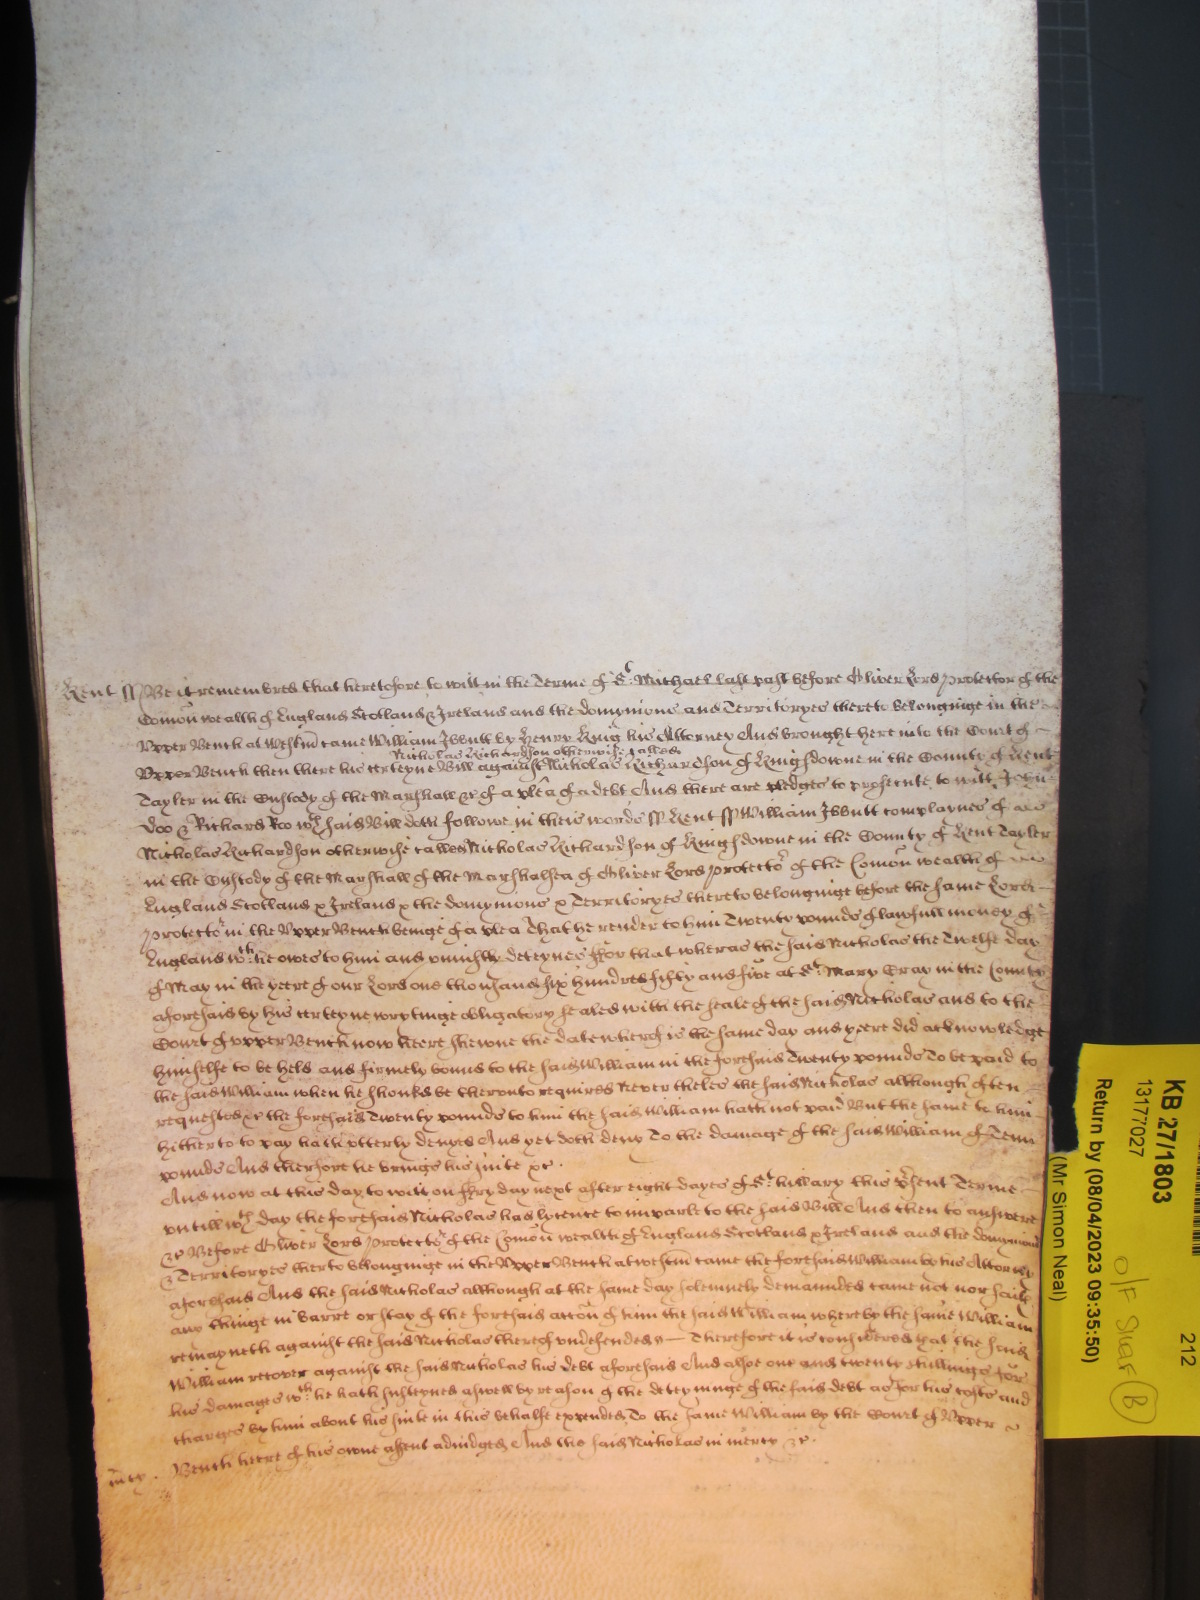 Kent ss Be it remembred that heretofore to witt in the Terme of St. Michael last past before Oliver Lord protector of the
Comon wealth of England Scotland & Ireland and the domynions and Territoryes thereto belonginge in the
Upper Bench at Westm came William Ibbutt by Henry King his Attorney And brought here into the Court of
Nicholas Richardson otherwise called
Upper Bench then there his certeyne Bill against Nicholas Richardson of Kingsdowne in the County of Kent
Tayler in the Custody of the Marshall &c of a plea of a debt And there are pledges to prosecute to witt John
Doo & Richard Roo wch said Bill doth followe in theis words ss Kent ss William Ibbutt complaynes of
Nicholas Richardson otherwise called Nicholas Richardson of Kingsdowne in the County of Kent Tayler
in the Custody of the Marshall of the Marshalsea of Oliver Lord protector of the Comon wealth of
England Scotland & Ireland & the domynions & Territoryes thereto belonginge before the same Lord
protector in the Upper Bench beinge of a plea That he render to him Twenty pounds of lawfull money of
England wch he owes to him and uniustly deteynes ffor that wheras the said Nicholas the Twelfe day
of May in the yeere of our Lord one thousand six hundred fifty and five at St. Mary Cray in the County
aforesaid by his certeyne wrytinge obligatory sealed with the seale of the said Nicholas and to the
Court of upper Bench now heere shewne the date wherof is the same day and yeere did acknowledge
himselfe to be held and firmely bound to the said William in the foresaid Twenty pounds To be paid to
the said William when he should be therunto required Never theles the said Nicholas although often
requested &c the foresaid Twenty pounds to him the said William hath not paid But the same to him
hitherto to pay hath utterly denyed And yet doth deny To the damage of the said William of Tenn
pounds And therfore he brings his suite &c.
And now at this day to witt on ffryday next after eight dayes of St. hillary this present Terme
untill wch day the foresaid Nicholas had lycence to imparle to the said Bill And then to answere
&c Before Oliver Lord protector of the Comon wealth of England Scotland & Ireland and the domynions
& Territoryes therto belonginge in the Upper Bench at westm came the foresaid William by his Attorney
aforesaid And the said Nicholas although at the same day solemnely demaunded came not nor said
any thinge in barre or stay of the foresaid accon of him the said William whereby the same William
remayneth against the said Nicholas thereof undefended Therefore it is considered that the said
William recover against the said Nicholas his debt aforesaid And alsoe one and twenty shillings for
his damages wch he hath susteyned aswell by reason of the deteyninge of the said debt as for his costs and
charges by him about his suite in this behalfe expended To the same William by the Court of Upper
mcy. Bench heere of his owne assent adiudged And the said Nicholas in mercy &c.
KB 27/1803
212
13177027
Return by (08/04/2023 09:35:50)
(Mr Simon Neal)
O/F Shar B